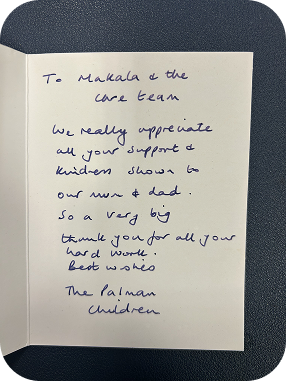 To Makala & the
care team
We really appreciate
all your support &
kindness shown to
our mum & dad.
So a very big
thank you for all your
hard work.
Best wishes
The Palman
Children